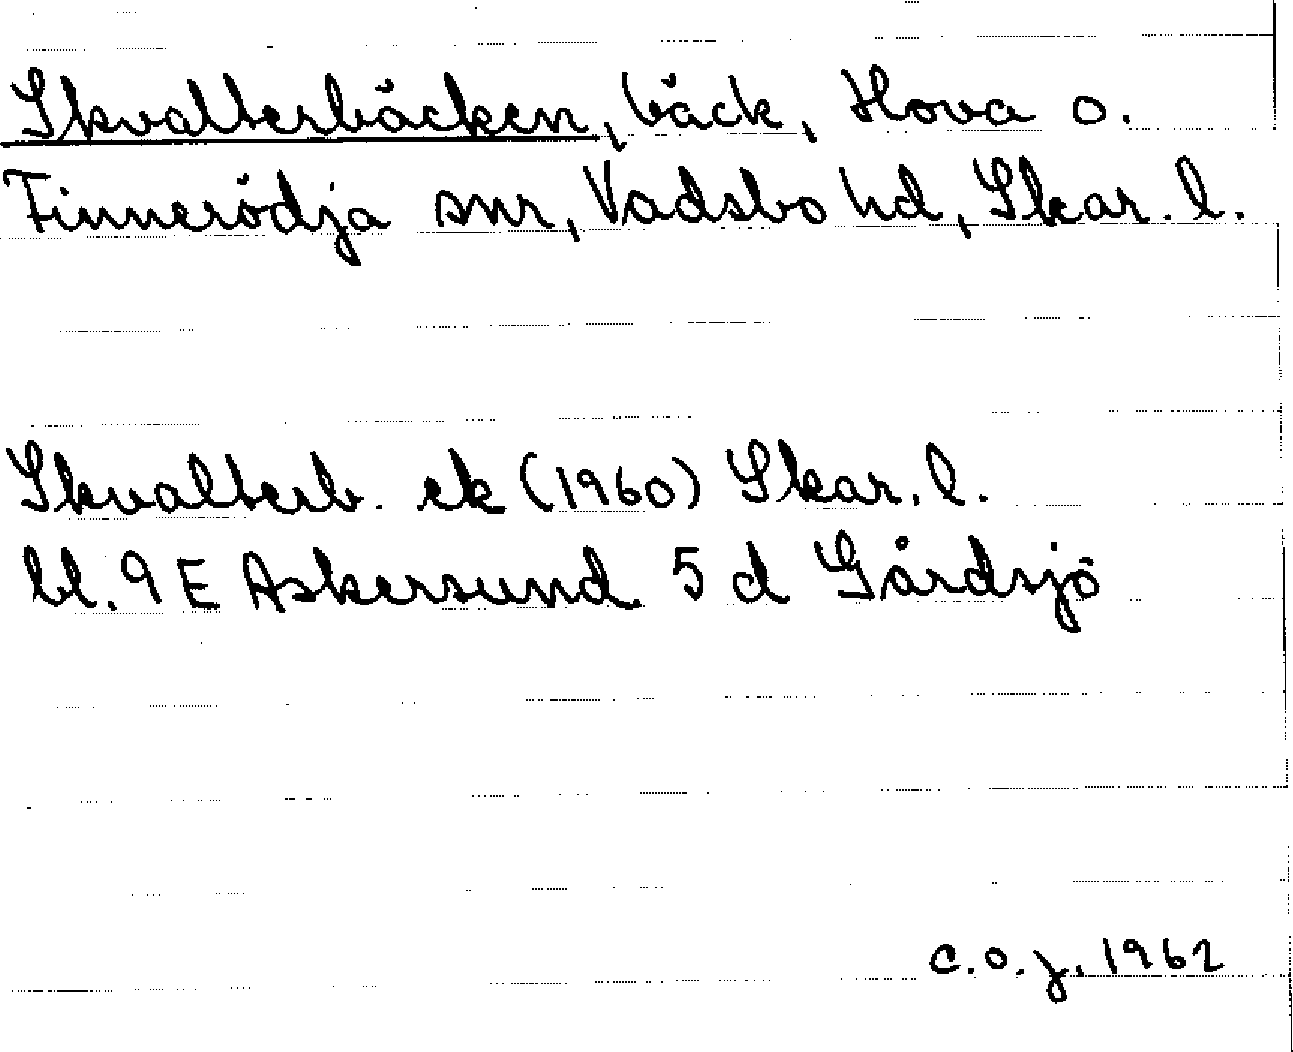 Skvalterbäcken, bäck, Hova o.
Finnerödja snr, Vadsbo hd, Skar. l.
Skvalterb. ek (1960) Skar. l.
bl. 9 E Askersund 5 d Gårdsjö
C.O.J. 1962